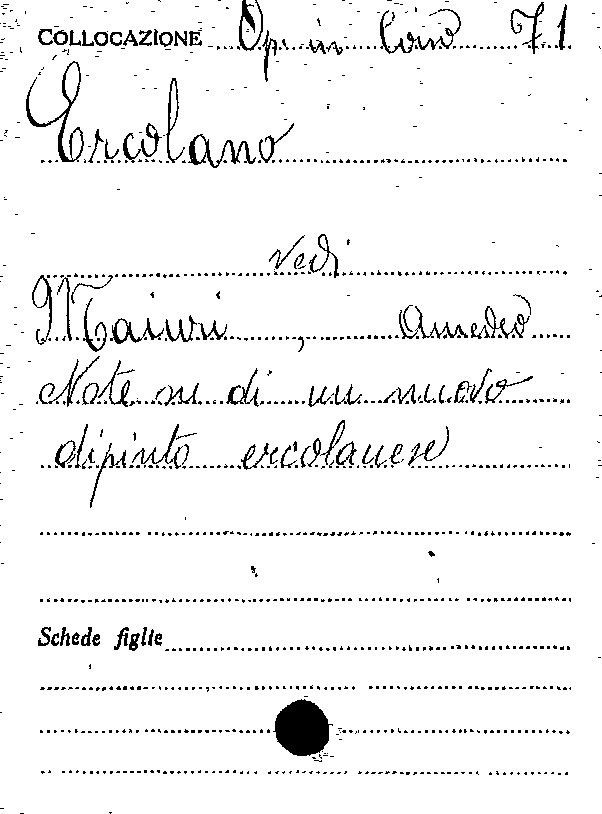 COLLOCAZIONE Op. in Coio 71
Ercolano
Vedi
Maiuri, Amedeo
Note su di un nuovo
dipinto ercolanese
Schede figlie